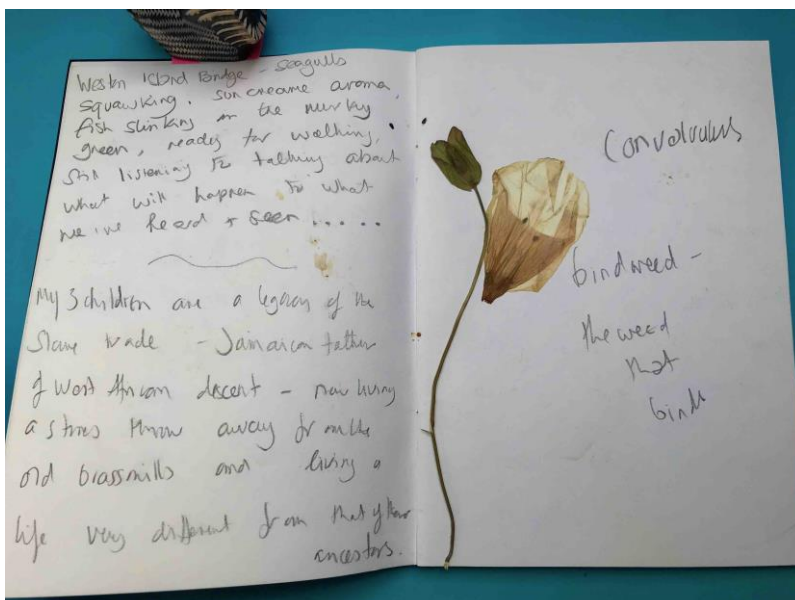 Weston Island Bridge - Seagulls
squawking, suncreame aroma,
fish slinking in the murky
green, ready for walking,
still listening to talking about
what will happen to what
we've heard + seen.....
My 3 children are a legacy of the
Slave trade - Jamaican father
of West African descent - now living
a stones throw away from the
old brassmills and living a
life very different from that of their
ancestors.
Convolvulus
bindweed -
the weed
that
binds